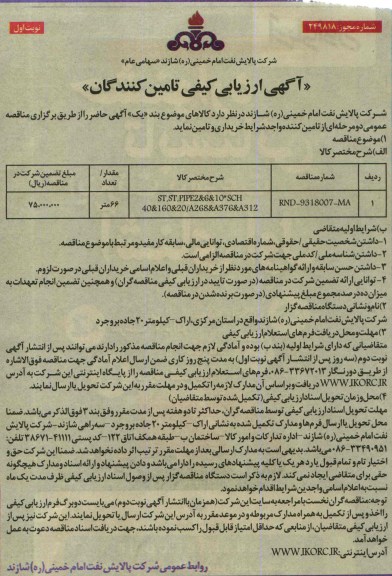 شماره مجوز: ۳۴۹۸۱۸
نوبت اول
شرکت پالایش نفت امام خمینی (ره) شازند «سهامی عام»
«آگهی ارزیابی کیفی تامین کنندگان»
شرکت پالایش نفت امام خمینی (ره) شازند در نظر دارد کالاهای موضوع بند «یک» آگهی حاضر را از طریق برگزاری مناقصه
عمومی دو مرحله‌ای از تامین کننده واجد شرایط خریداری و تامین نماید.
۱) موضوع مناقصه
الف) شرح مختصر کالا
ردیف شماره مناقصه شرح مختصر کالا مقدار/تعداد مبلغ تضمین شرکت در مناقصه (ریال)
۱ RND-9318007-MA ST,ST.PIPE2&6&10*SCH 40&160&20/A268&A376&A312 ۶۶ متر ۷۵,۰۰۰,۰۰۰
ب) شرایط اولیه متقاضی
۱- داشتن شخصیت حقیقی/حقوقی، شماره اقتصادی، توانایی مالی، سابقه کار مفید و مرتبط با موضوع مناقصه.
۲- داشتن شناسه ملی/کد ملی جهت شرکت در مناقصه الزامی است.
۳- داشتن حسن سابقه و ارائه گواهینامه های مورد نظر از خریداران قبلی و اعلام اسامی خریداران قبلی در صورت لزوم.
۴- توانایی ارائه تضمین شرکت در مناقصه (در صورت تایید در ارزیابی کیفی مناقصه گران) و همچنین تضمین انجام تعهدات به
میزان ده درصد مجموع مبلغ پیشنهادی (در صورت برنده شدن در مناقصه).
۲) نام و نشانی دستگاه مناقصه گزار
شرکت پالایش نفت امام خمینی (ره) شازند واقع در استان مرکزی، اراک - کیلومتر ۲۰ جاده بروجرد
۳) مهلت و محل دریافت فرم های استعلام ارزیابی کیفی
متقاضیانی که دارای شرایط اولیه (بند ب) بوده و آمادگی لازم جهت انجام مناقصه مذکور را دارند می توانند پس از انتشار آگهی
نوبت دوم (سه روز پس از انتشار آگهی نوبت اول) به مدت پنج روز کاری ضمن ارسال اعلام آمادگی جهت مناقصه فوق الاشاره
از طریق دورنگار ۳۳۶۷۲۰۱۳-۰۸۶، فرم های استعلام ارزیابی کیفی مناقصه را از پایگاه اینترنتی این شرکت به آدرس
WWW.IKORC.IR دریافت و بر اساس آن مدارک لازمه را تکمیل و در مهلت مقرر به این شرکت تحویل یا ارسال نمایند.
۴) محل و زمان تحویل اسناد ارزیابی کیفی (تکمیل شده توسط متقاضیان)
مهلت تحویل اسناد ارزیابی کیفی توسط مناقصه گران، حداکثر تا دو هفته پس از مدت مقرر وفق بند ۳ فوق الذکر می باشد. ضمنا
محل تحویل یا ارسال فرم ها و مدارک تکمیل شده به نشانی اراک - کیلومتر ۲۰ جاده بروجرد - سه راهی شازند - شرکت پالایش
نفت امام خمینی (ره) شازند - اداره تدارکات و امور کالا - ساختمان ب - طبقه همکف اتاق ۱۲۲ - کد پستی ۴۱۱۱۱-۳۸۶۷۱ تلفن:
۳۳۴۹۰۹۵۱-۰۸۶ می باشد. بدیهی است به مدارک ارسالی بعد از مهلت مقرر ترتیب اثر داده نخواهد شد. ضمنا این شرکت حق و
اختیار تام و تمام قبول یا رد هر یک یا کلیه پیشنهادهای رسیده را دارا می باشد و دادن پیشنهاد و ارائه اسناد و مدارک هیچگونه
حقی برای متقاضی ایجاد نمی کند. لازم به ذکر است دستگاه مناقصه گزار پس از وصول اسناد ارزیابی کیفی ظرف مدت یک ماه
نسبت به اعلام اسامی واجدین شرایط اقدام خواهد نمود.
توجه: مناقصه گران نخست با مراجعه به سایت این شرکت (همزمان با انتشار آگهی نوبت دوم) می بایست دو برگ فرم ارزیابی کیفی
را اخذ و پس از تکمیل به همراه مدارک مربوطه و در موعد مقرر به آدرس این شرکت ارسال یا تحویل نمایند. این شرکت نیز پس از
ارزیابی کیفی متقاضیان، از منابعی که حداقل امتیاز قابل قبول را کسب نموده باشند، جهت دریافت اسناد مناقصه دعوت به عمل
خواهد آمد.
آدرس اینترنتی: WWW.IKORC.IR
روابط عمومی شرکت پالایش نفت امام خمینی (ره) شازند